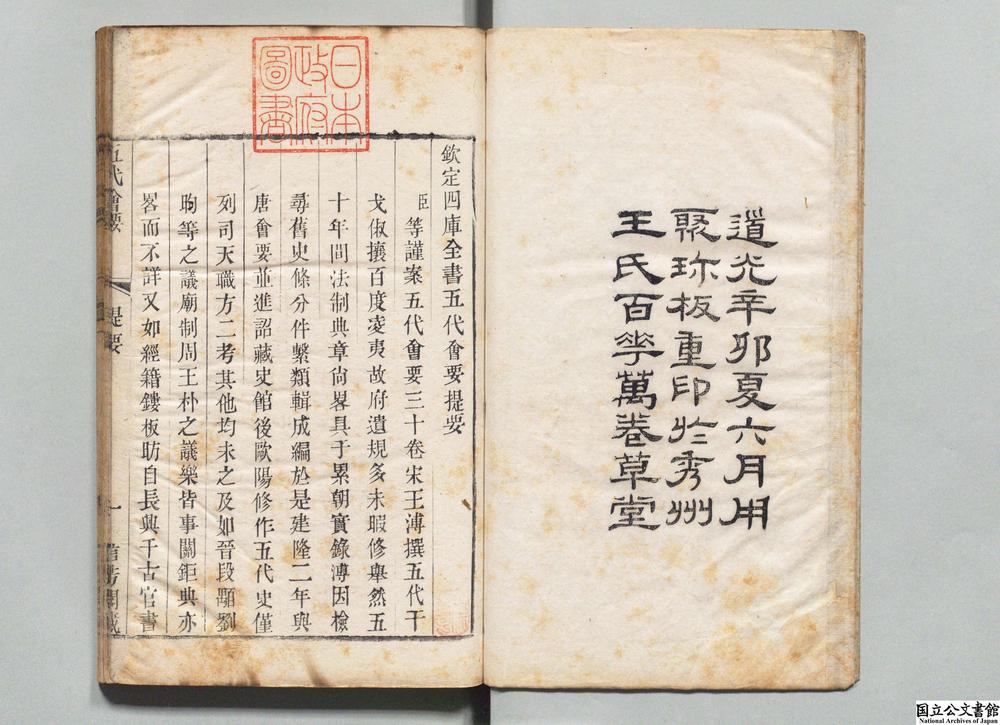 道光辛卯夏六月用
聚珍板重印於秀州
王氏百華萬卷草堂
日本
政府
圖書
欽定四庫全書五代會要提要
臣等謹案五代會要三十卷宋王溥撰五代干
戈俶攘百度凌夷故府遺規多未暇修舉然五
十年間法制典章尚畧具于累朝實錄溥因檢
尋舊史條分件繫類輯成編於是建隆二年與
唐會要並進詔藏史館後歐陽修作五代史僅
列司天職方二考其他均未之及如晉段顒劉
昫等之議廟制周王朴之議樂皆事關鉅典亦
畧而不詳又如經籍鏤板昉自長興千古官書
五代會要
提要
一
國立公文書館
National Archives of Japan